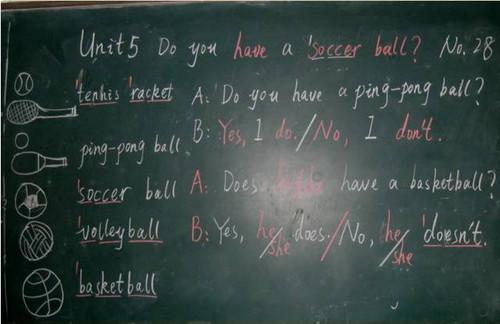 Unit5 Do you have a soccer ball? No. 28
tennis racket A: Do you have a ping-pong ball?
ping-pong ball B: Yes, I do./No, I don't.
soccer ball A: Does he/she have a basketball?
volleyball B: Yes, he/she does./No, he/she doesn't.
basketball